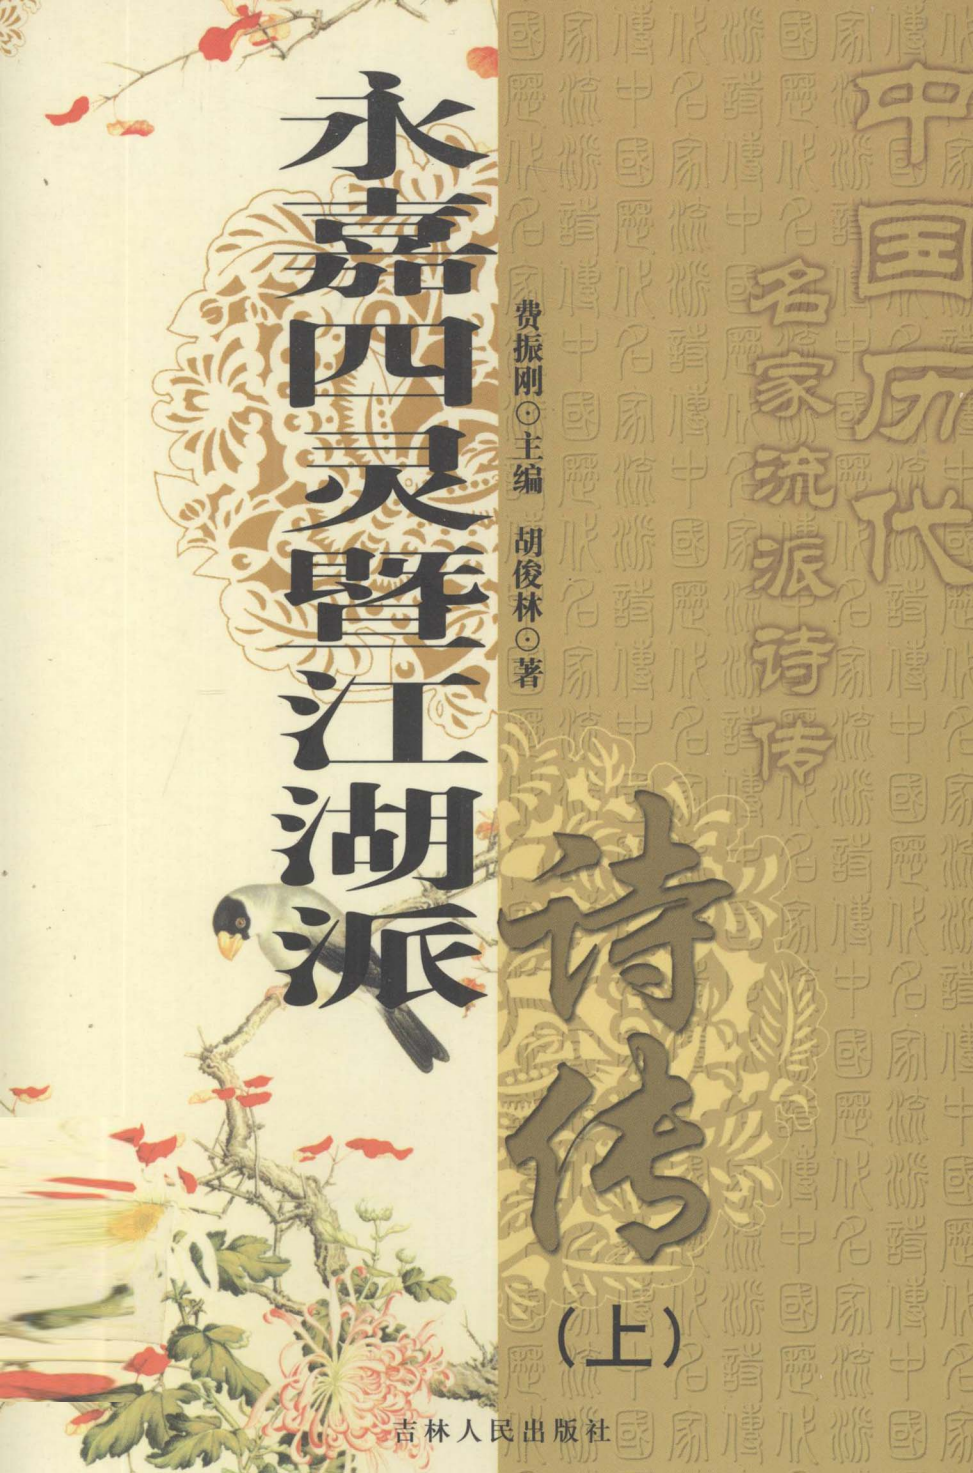 中国历代
名家流派诗传
永嘉四灵暨江湖派
诗传
（上）
费振刚⊙主编 胡俊林⊙著
吉林人民出版社